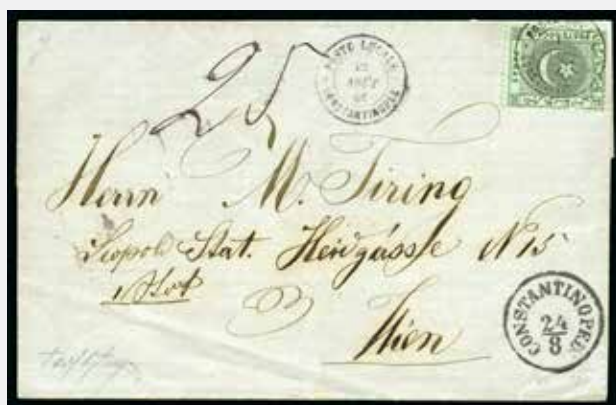 25
POSTE LOCALE
12
AOUT
CONSTANTINOPLE
Herrn M. Tiring
Leopold Stat. Heidgásse N 15
Wien
CONSTANTINOPEL
24
8